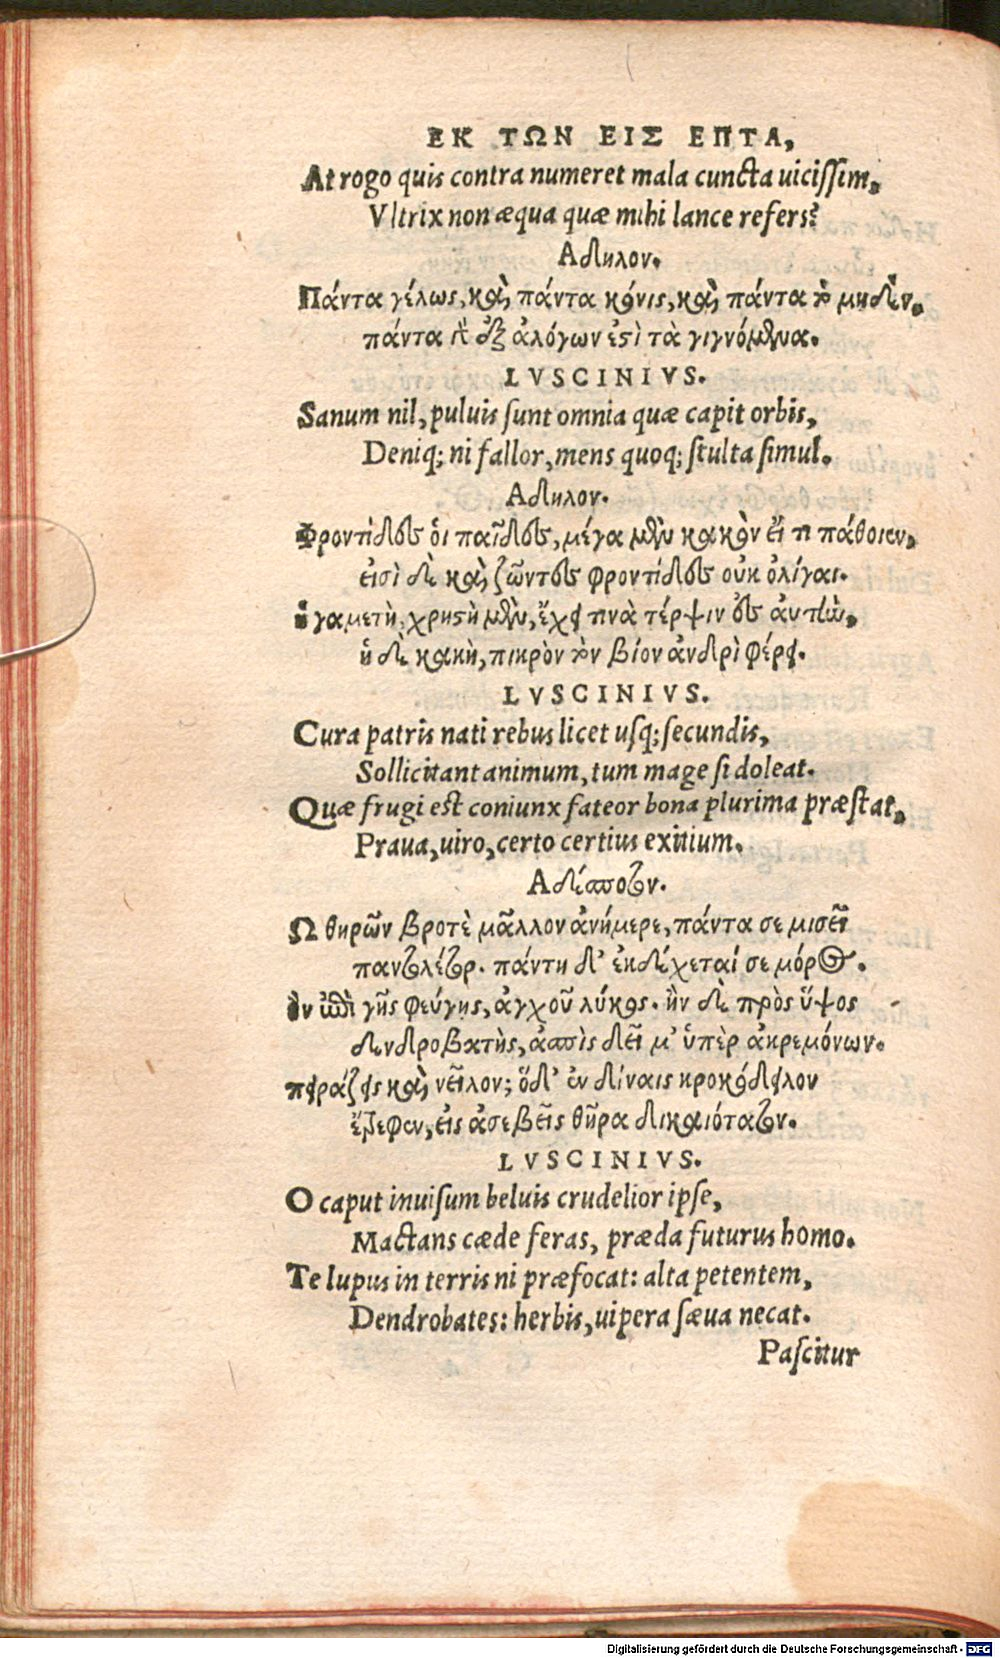 ΕΚ ΤΩΝ ΕΙΣ ΕΠΤΑ,
At rogo quis contra numeret mala cuncta uicissim,
Vltrix non æqua quæ mihi lance refers?
Αδηλον.
Πάντα γέλως, καὶ πάντα κόνις, καὶ πάντα τὸ μηδέν,
πάντα γὰρ ἐξ ἀλόγων ἐστὶ τὰ γιγνόμενα.
LVSCINIVS.
Sanum nil, puluis sunt omnia quæ capit orbis,
Deniq; ni fallor, mens quoq; stulta simul.
Αδηλον.
Φροντίδες ὁι παῖδες, μέγα μὲν κακὸν ἔι τι πάθοιεν,
ἐισὶ δὲ καὶ ζῶντες φροντίδες ουκ ὀλίγαι.
ἡ γαμετὴ, χρηστὴ μὲν, ἔχει τινὰ τέρψιν ἐς ἀυτὴν,
ἡ δὲ κακὴ, πικρὸν τὸν βίον ἀνδρὶ φέρει.
LVSCINIVS.
Cura patris nati rebus licet usq; secundis,
Sollicitant animum, tum mage si doleat.
Quæ frugi est coniunx fateor bona plurima præstat,
Praua, uiro, certo certius exitium.
Αδέσποτον.
Ω θηρῶν βροτὲ μᾶλλον ἀνήμερε, πάντα σε μισεῖ
πατολέτορ. πάντη δ' ἐκδέχεταί σε μόρος.
ἢν ἐπὶ γῆς φεύγης, ἀγχοῦ λύκος. ἢν δὲ πρὸς ὕψος
δενδροβατῆς, ἀσπὶς δεῖ μ' ὑπὲρ ἀκρεμόνων.
πειράζεις καὶ νεῖλον; ὅδ' ἐν δίναις κροκόδειλον
ἔτρεφεν, ἐις ἀσεβεῖς θῆρα δικαιότατον.
LVSCINIVS.
O caput inuisum beluis crudelior ipse,
Mactans cæde feras, præda futurus homo.
Te lupus in terris ni præfocat: alta petentem,
Dendrobates: herbis, uipera sæua necat.
Pascitur
Digitalisierung gefördert durch die Deutsche Forschungsgemeinschaft - DFG